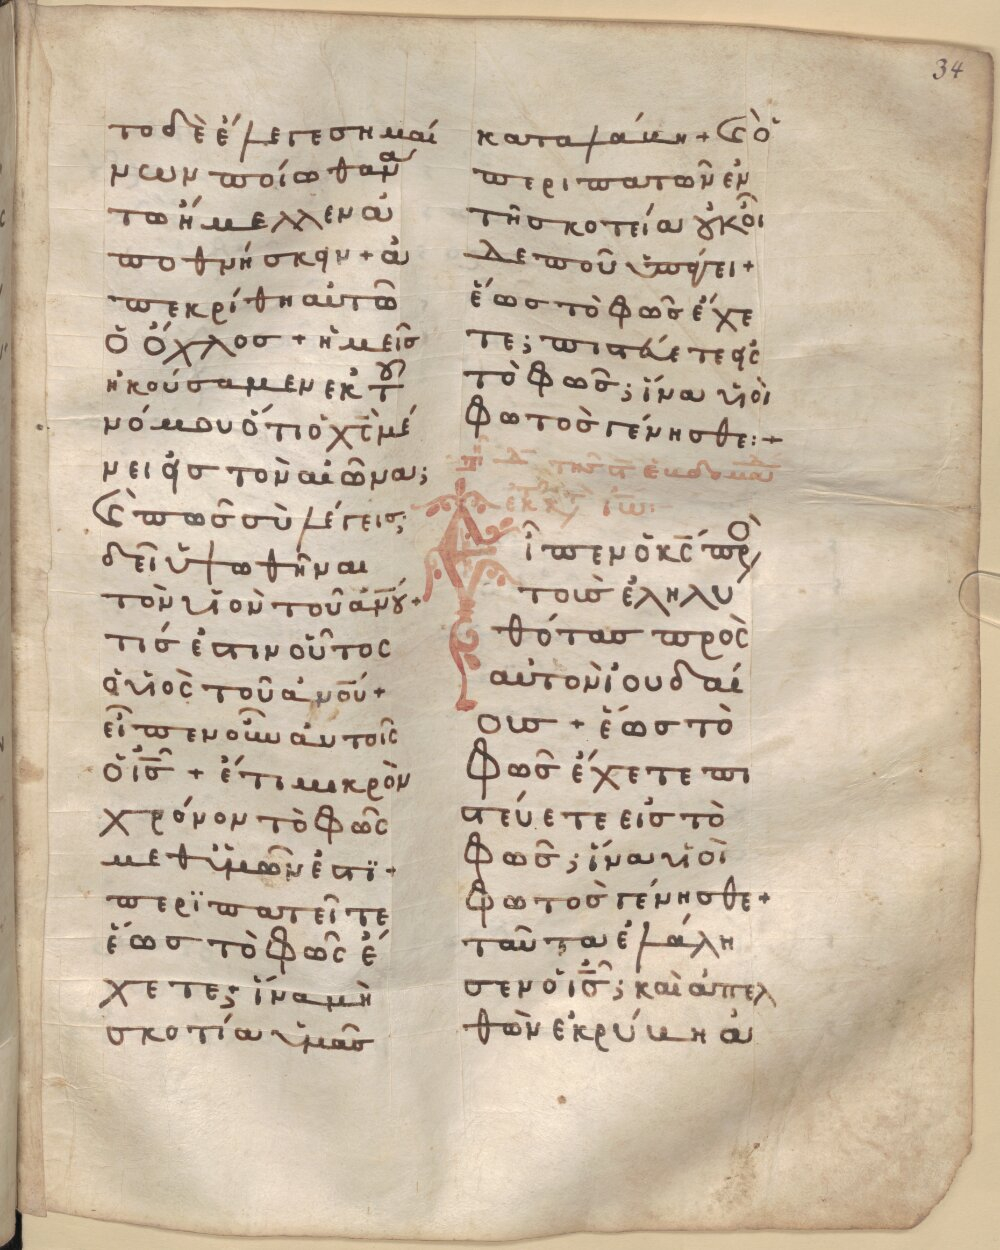 34
το δὲ ἔλεγε σημαί
νων ποίω θαν
τω ἤμελλεν ἀ
ποθνήσκειν + ἀ
πεκρίθη αὐτῶ
ὁ ὄχλος + ἡμεῖς
ἠκούσαμεν ἐκ τ
νόμου ὅτι ὁ χς μέ
νει εἰς τὸν αἰῶνα;
καὶ πῶς σὺ λέγεις;
δεῖ ὑψωθῆναι
τὸν υἱὸν τοῦ ἀνου +
τίς ἐστιν οὗτος
ὁ υἱὸς τοῦ ἀνου +
εἶπεν οὖν αὐτοῖς
ὁ ις + ἔτι μικρὸν
χρόνον τὸ φῶς
μεθ ὑμῶν ἐστι +
περιπατεῖτε
ἕως τὸ φῶς ἔ
χετε; ἵνα μὴ
σκοτία ὑμᾶς
καταλάβη + καὶ ὁ
περιπατῶν ἐν
τῆ σκοτία οὐκ οἶ
δε ποῦ ὑπάγει +
ἕως τὸ φῶς ἔχε
τε; πιστεύετε εἰς
τὸ φῶς; ἵνα υἱοὶ
φωτὸς γένησθε: +
τῆς ἑβδομάδ
ἐκ κ ιω:
Εἶπεν ὁ κς πρ
τοὺς ἐληλυ
θότας πρὸς
αὐτὸν ἰουδαί
ους + ἕως τὸ
φῶς ἔχετε πι
στεύετε εἰς τὸ
φῶς; ἵνα υἱοὶ
φωτὸς γένησθε +
ταῦτα ἐλάλη
σεν ὁ ις; καὶ ἀπελ
θὼν ἐκρύβη ἀ